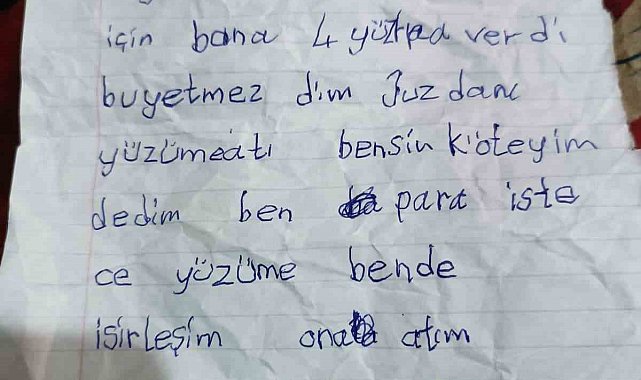 için bana 4 yüzlra verdi
buyetmez dim Juzdanı
yüzümeatı bensin köteyim
dedim ben para iste
ce yüzüme bende
isirleşim ona atım